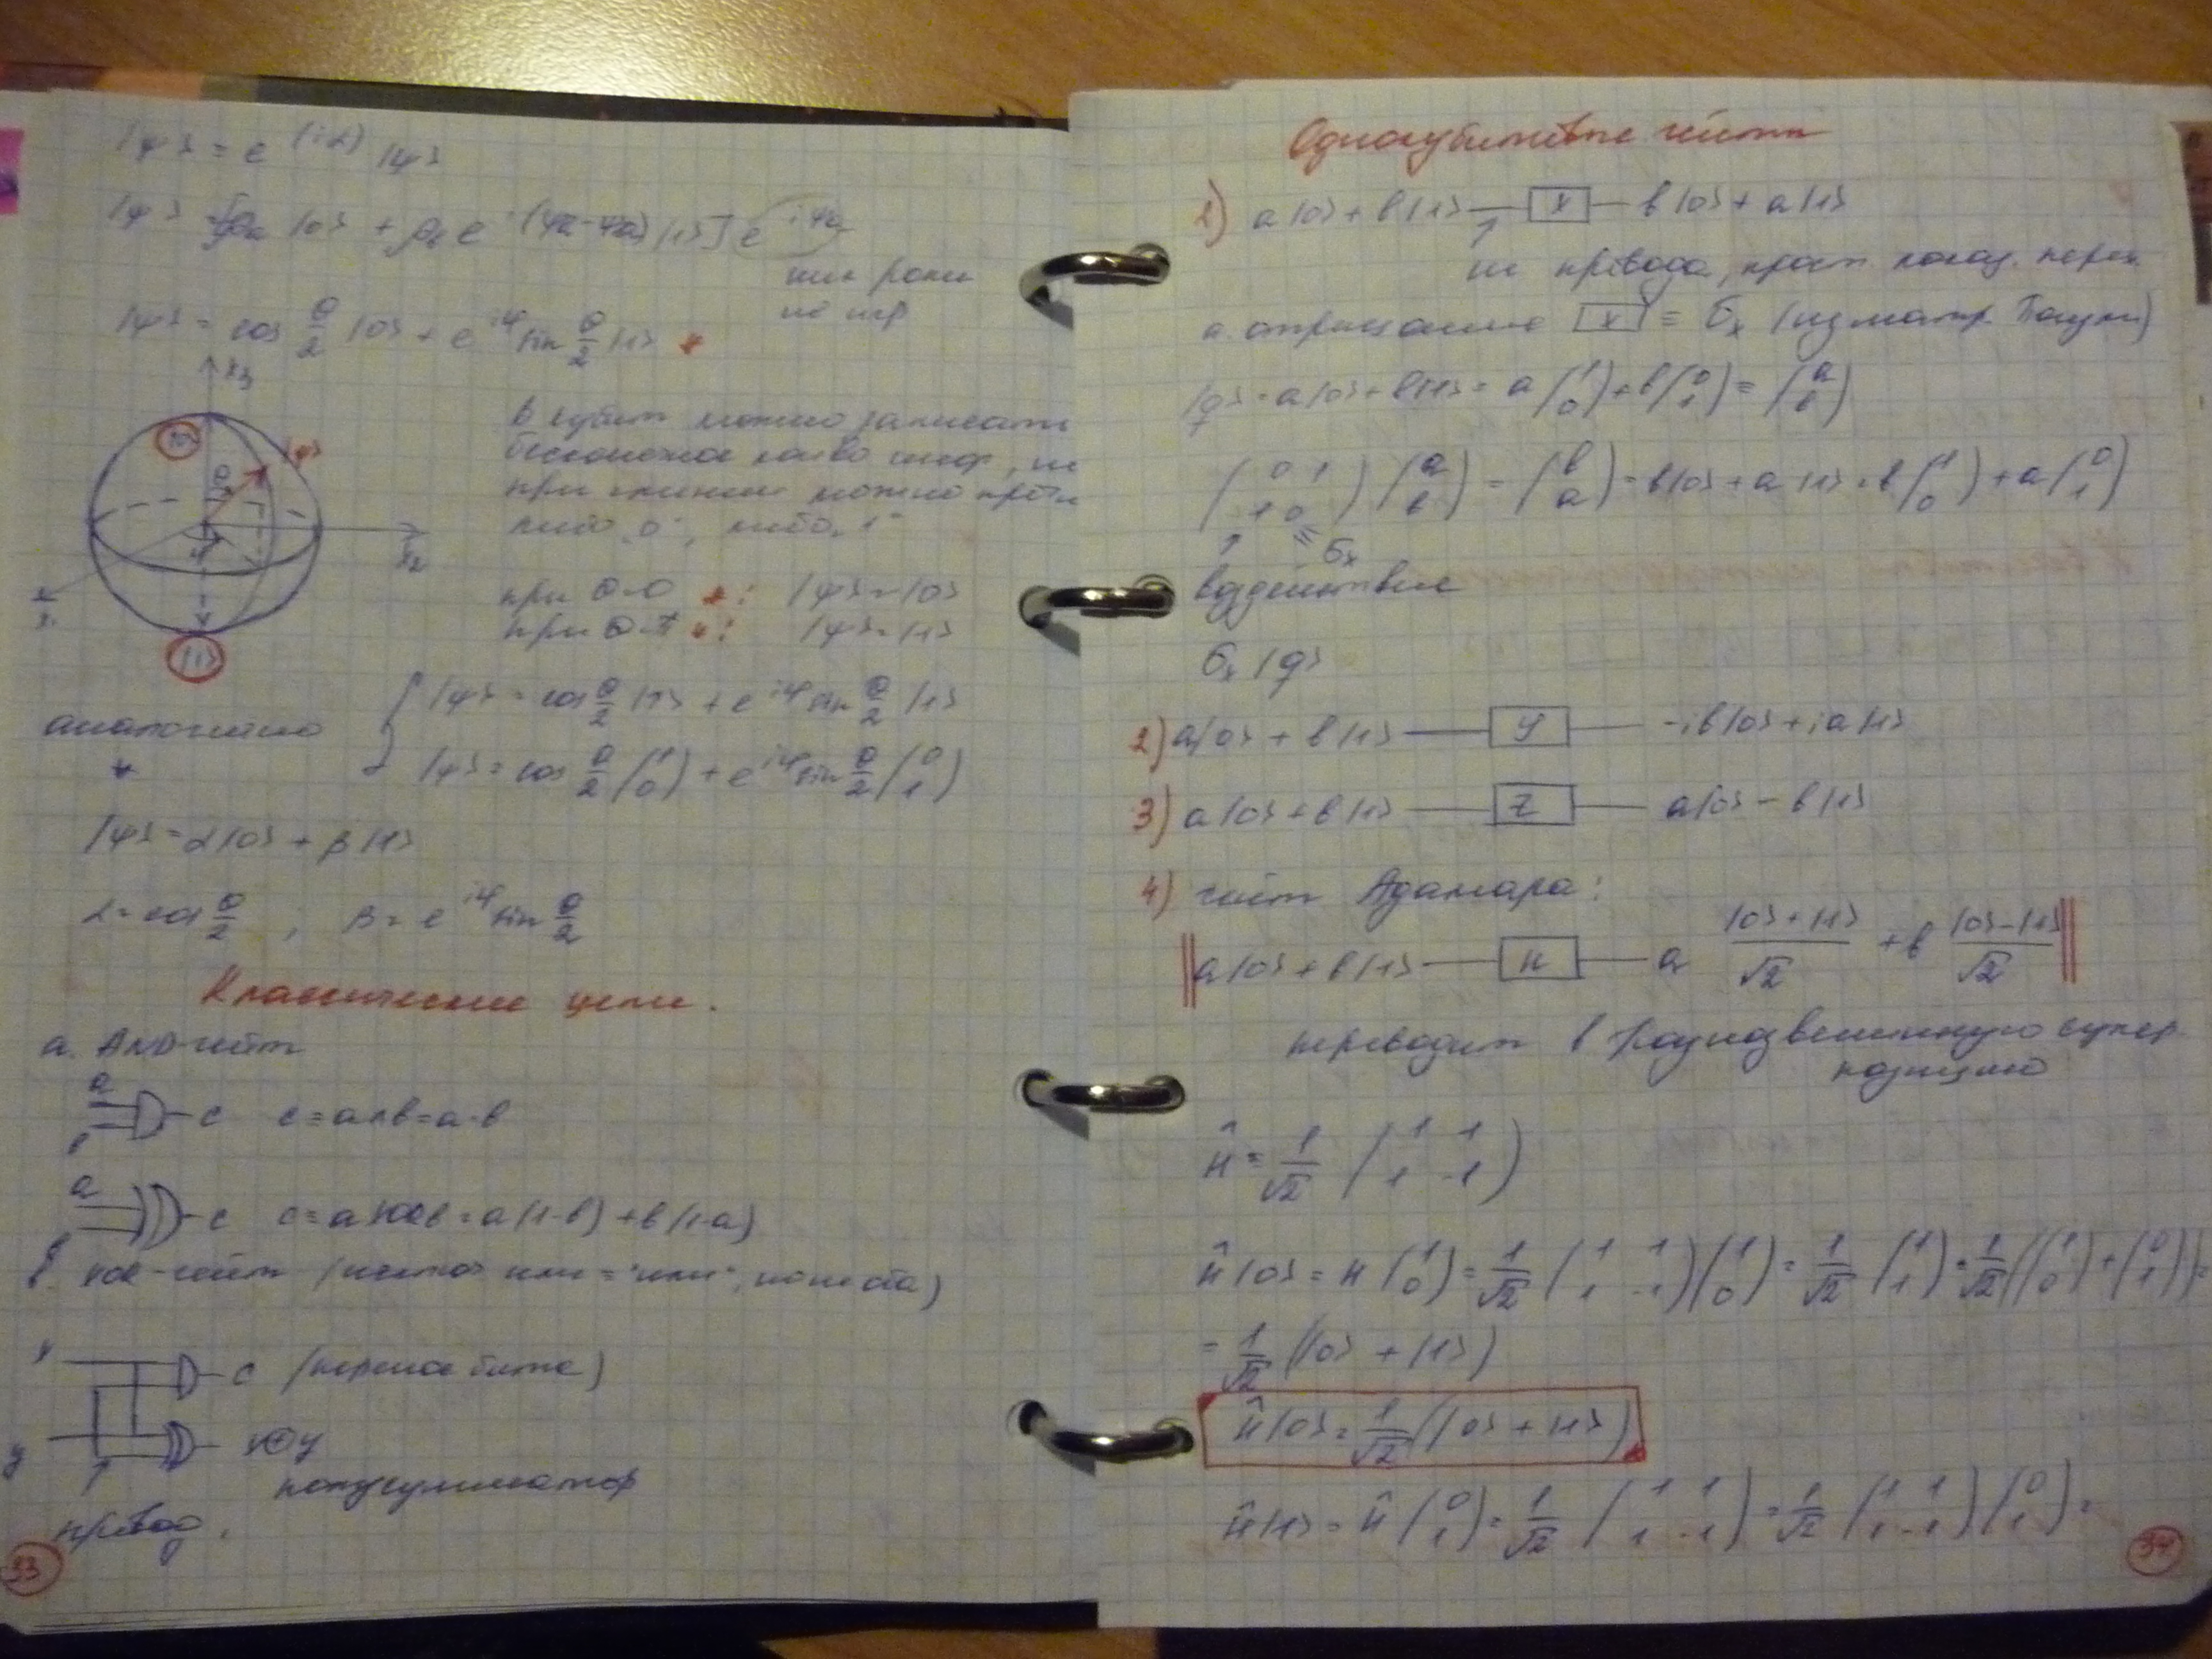 |ψ> = e^(iα) |ψ>
|ψ> = [ρₐ |0> + ρ_b e^(φ_b-φₐ) |1>] e^(iφₐ)
роли
не игр
|ψ> = cos θ/2 |0> + e^(iφ) sin θ/2 |1> *
x₃
|0>
|ψ>
θ
φ
x₂
x₁
|1>
В кубит можно записать
бесконечное кол-во инф, но
при можно
либо "0", либо "1"
при θ=0 *: |ψ>=|0>
при θ=π *: |ψ>=|1>
аналогично
*
|ψ> = cos θ/2 |0> + e^(iφ) sin θ/2 |1>
|ψ> = cos θ/2 (1 0) + e^(iφ) sin θ/2 (0 1)
|ψ> = α|0> + β|1>
α = cos θ/2 ; β = e^(iφ) sin θ/2
Классические цепи.
а. AND-гейт
a
b
c c = a∧b = a·b
a
b
c c = a XOR b = a(1-b) + b(1-a)
в. XOR-гейт
x
c (перенос бита)
y
x⊕y
полусумматор
провод.
33
Однокубитовые гейты
1) a|0> + b|1> — X — b|0> + a|1>
не провода, прост. показ. перех.
а. отрицание X ≡ σₓ (из матр. Паули)
|q> = a|0> + b|1> = a (1 0) + b (0 1) = (a b)
(0 1 1 0) (a b) = (b a) = b|0> + a|1> = b (1 0) + a (0 1)
σₓ
воздействие
σₓ |q>
2) a|0> + b|1> — Y — -ib|0> + ia|1>
3) a|0> + b|1> — Z — a|0> - b|1>
4) гейт Адамара:
a|0> + b|1> — H — a (|0>+|1>)/√2 + b (|0>-|1>)/√2
переводит в равновзвешенную супер
позицию
Ĥ = 1/√2 (1 1 1 -1)
Ĥ|0> = H (1 0) = 1/√2 (1 1 1 -1) (1 0) = 1/√2 (1 1) = 1/√2 ((1 0) + (0 1)) =
= 1/√2 (|0> + |1>)
Ĥ|0> = 1/√2 (|0> + |1>)
Ĥ|1> = Ĥ (0 1) = 1/√2 (1 1 1 -1) = 1/√2 (1 1 1 -1) (0 1) =
34